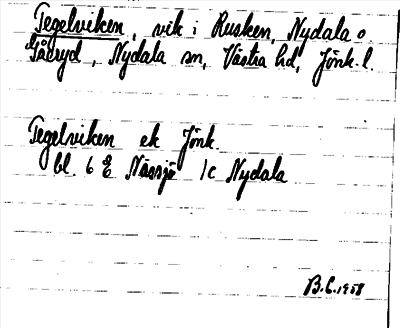 Tegelviken, vik i Rusken, Nydala o.
Gåeryd, Nydala sn, Västra hd, Jönk. l.
Tegelviken ek Jönk.
bl. 6 E Nässjö 1c Nydala
B.E. 1958